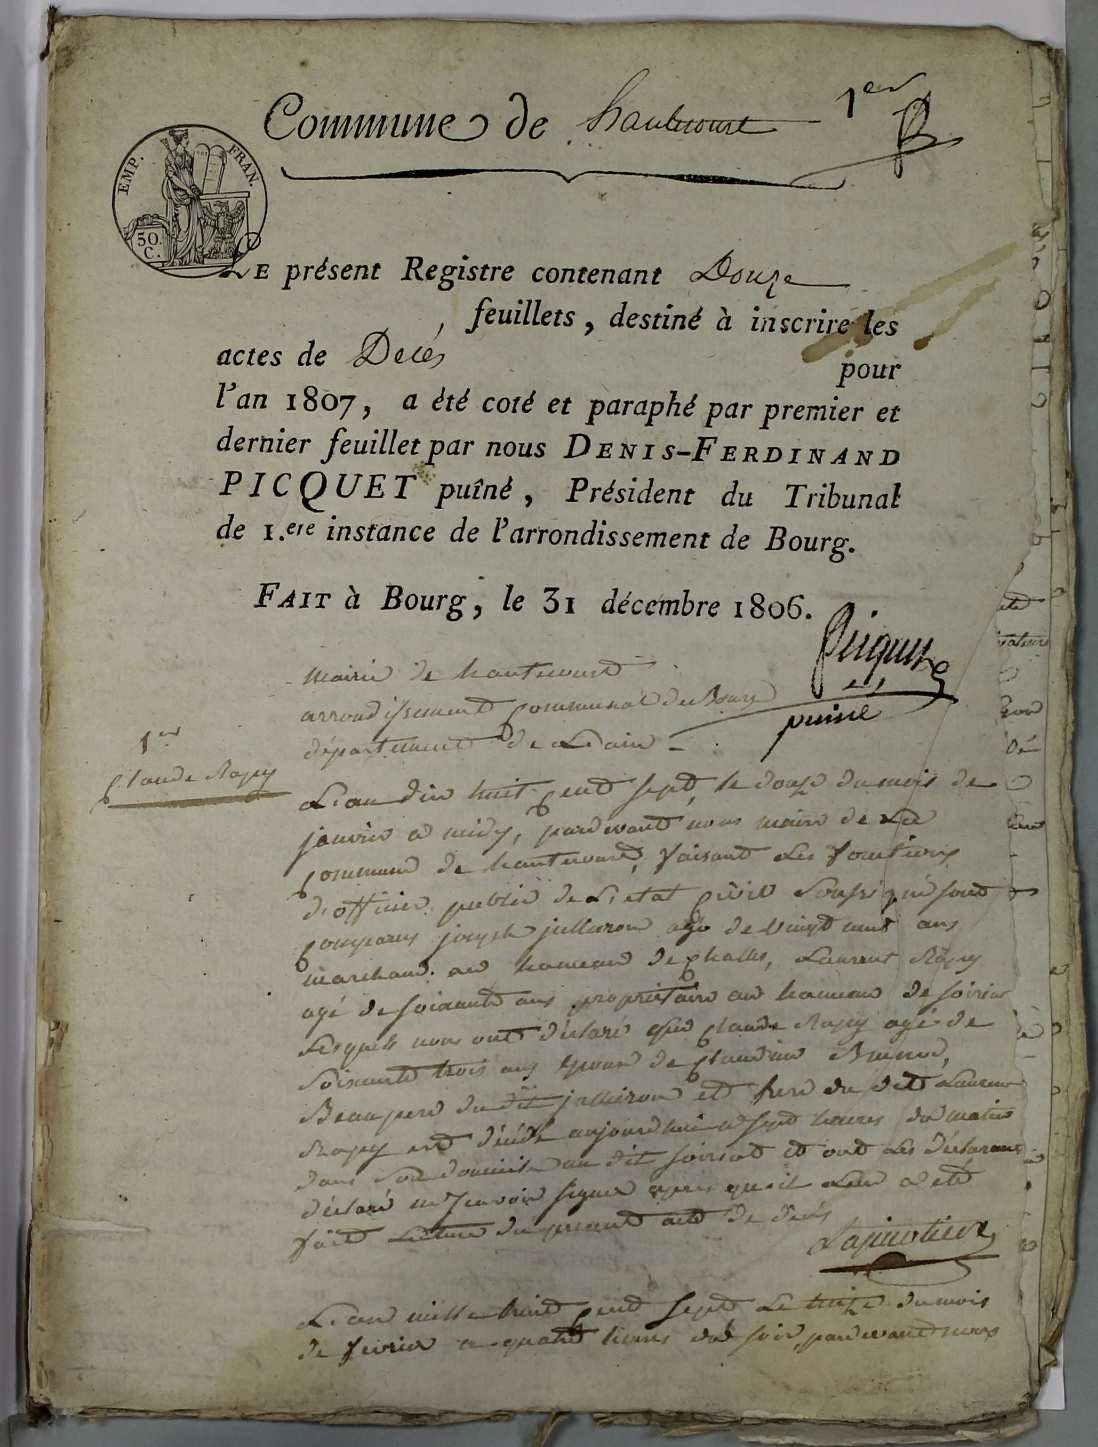 Commune de hautecourt
1er
EMP. FRAN.
50. C.
LE présent Registre contenant Douze
feuillets, destiné à inscrire les
actes de Décés pour
l'an 1807, a été coté et paraphé par premier et
dernier feuillet par nous DENIS-FERDINAND
PICQUET puîné, Président du Tribunal
de 1.ere instance de l'arrondissement de Bourg.
FAIT à Bourg, le 31 décembre 1806.
Picquet
puiné
Mairie de hautecourt
arrondissement communal de Bourg
département de L'ain
1er
Claude Rapy
L'an dix huit cent sept, le douze du mois de
janvier a midy, pardevant nous maire de La
commune de hautecourt, faisant Les fonctions
d'officier public de L'etat civil Soussigné sont
comparus joseph jullieron agé de vingt neuf ans
marchand au hameau de challes, Laurent Rapy
agé de soixante ans propriétaire au hameau de soiriat
Lesquels nous ont déclaré que Claude Rapy agé de
soixante trois ans epoux de Claudine
Beaupere du dit jullieron et frere du dit Laurent
Rapy est décédé aujourdhui a sept heures du matin
dans son domicile au dit soiriat et ont Les déclarants
déclaré ne savoir signer apres qu'il Leur a été
fait Lecture du present acte de décés
L'an mille huit cent sept Le treize du mois
de fevrier a quatre heures du soir, pardevant nous